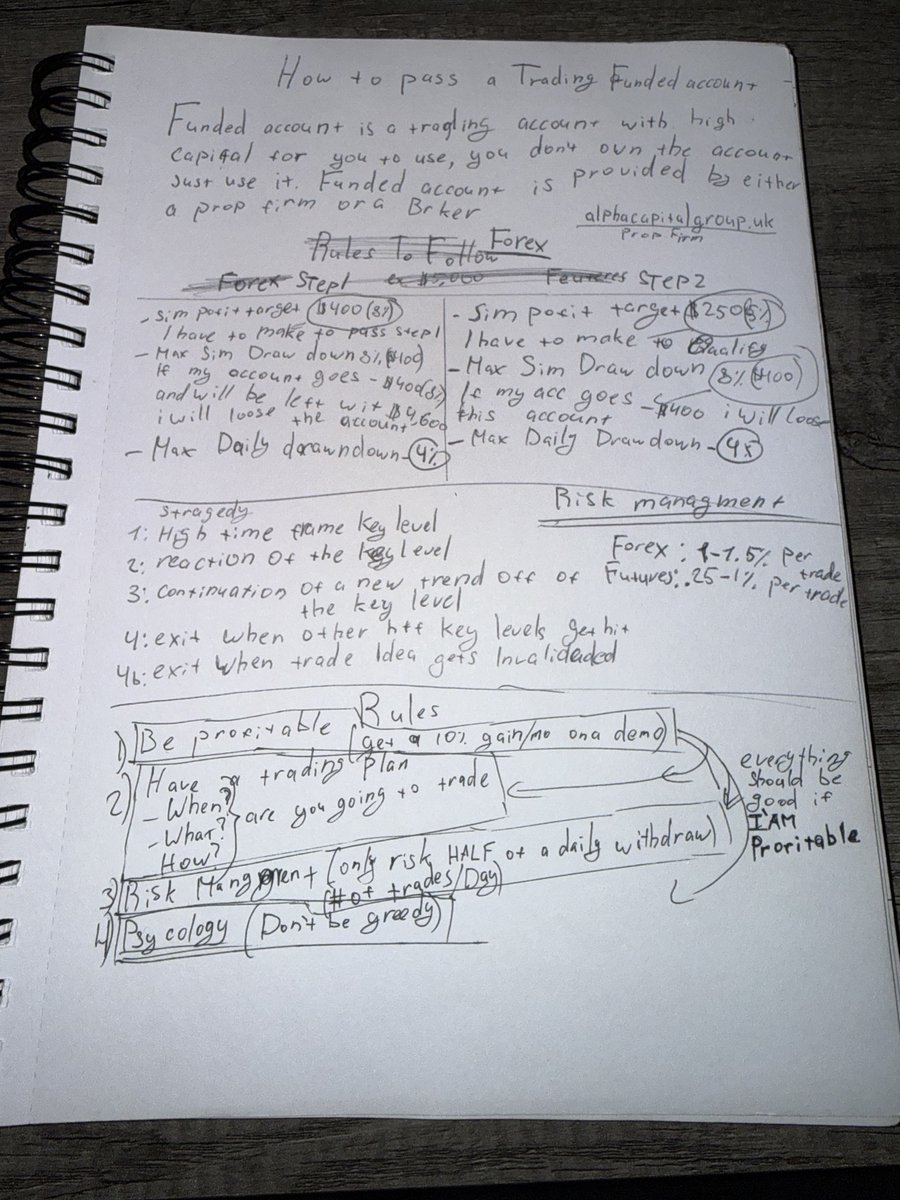 How to pass a Trading Funded account
Funded account is a tragling account with high
capital for you to use, you don't own the account
Just use it. Funded account is provided by either
a prop firm or a Brker
alphacapitalgroup.uk
Prop Firm
Rules To Follow Forex
Forex Step1 ex $5,000 STEP2
- Sim posit target $400 (8%)
I have to make to pass step1
- Max Sim Draw down 8% $400
If my account goes -$400(8%)
and will be left wit $4,600
i will loose the account
- Max Daily drawndown - 4%
- Sim posit target $250(5%)
I have to make to Qualify
- Max Sim Draw down 8% $400
If my acc goes -$400 i will loose
this account
- Max Daily Drawdown - 4%
Stragedy
1: High time frame key level
2: reaction of the key level
3: continuation of a new trend off of
the key level
4: exit when other htf key levels get hit
4b: exit when trade Idea gets Invalidaded
Risk managment
Forex: 1-1.5% per
trade
Futures: .25-1% per trade
Rules
1) Be profitable (get a 10% gain/mo on a demo)
2) Have a trading plan
- When?
- What? } are you going to trade
How?
3) Risk Mangment (only risk HALF of a daily withdraw)
(# of trades/Day)
4) Psycology (Don't be greedy)
everything
should be
good if
I'AM
Profitable